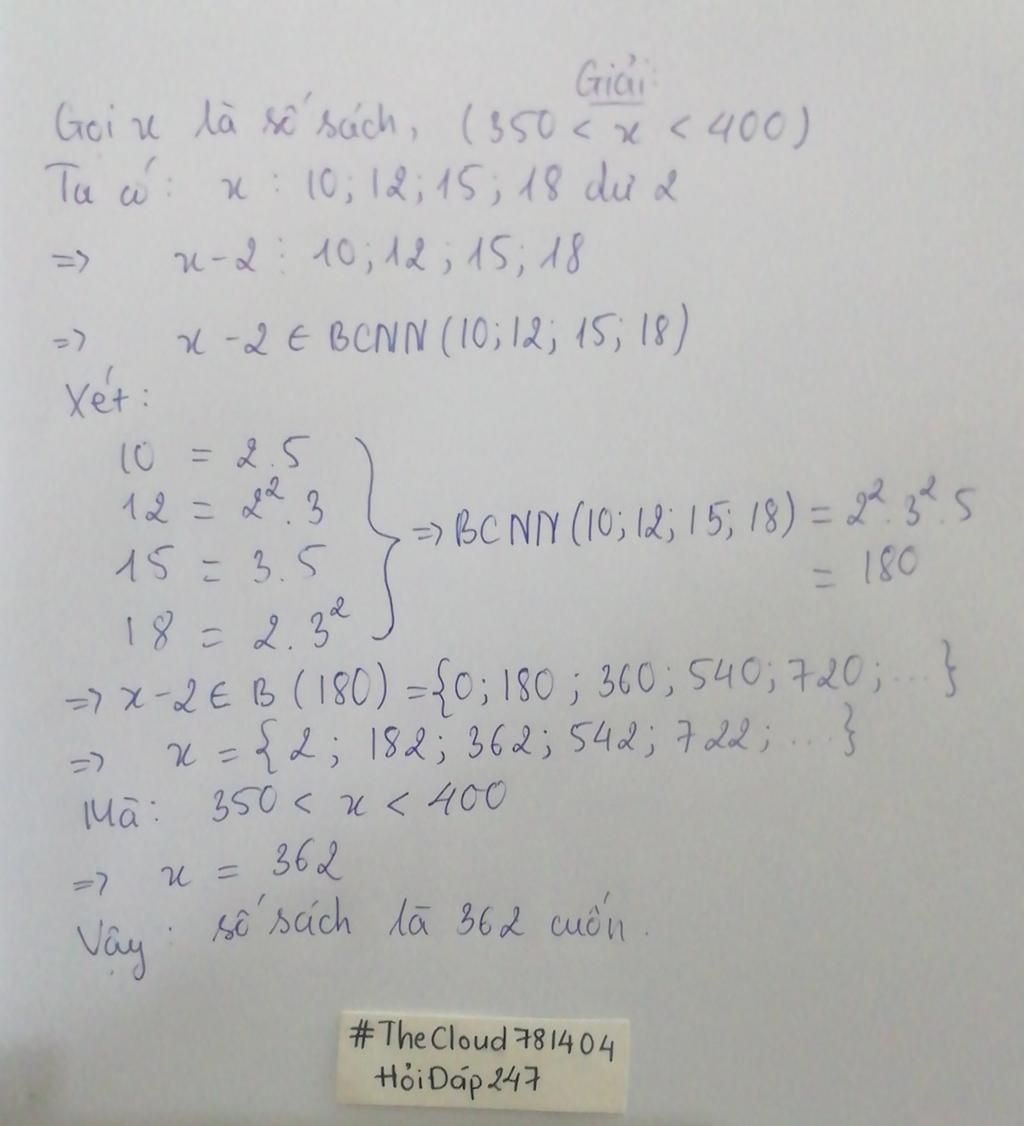 Giải:
Gọi x là số sách, (350 < x < 400)
Ta có: x : 10; 12; 15; 18 dư 2
=> x-2 ⋮ 10; 12; 15; 18
=> x -2 ∈ BCNN(10; 12; 15; 18)
Xét:
10 = 2.5
12 = 2². 3
15 = 3. 5
18 = 2. 3²
=> BCNN(10; 12; 15; 18) = 2². 3². 5
= 180
=> x-2 ∈ B (180) = {0; 180; 360; 540; 720; ... }
=> x = {2; 182; 362; 542; 722; ... }
Mà: 350 < x < 400
=> x = 362
Vậy: số sách là 362 cuốn.
#TheCloud781404
HỏiĐáp247